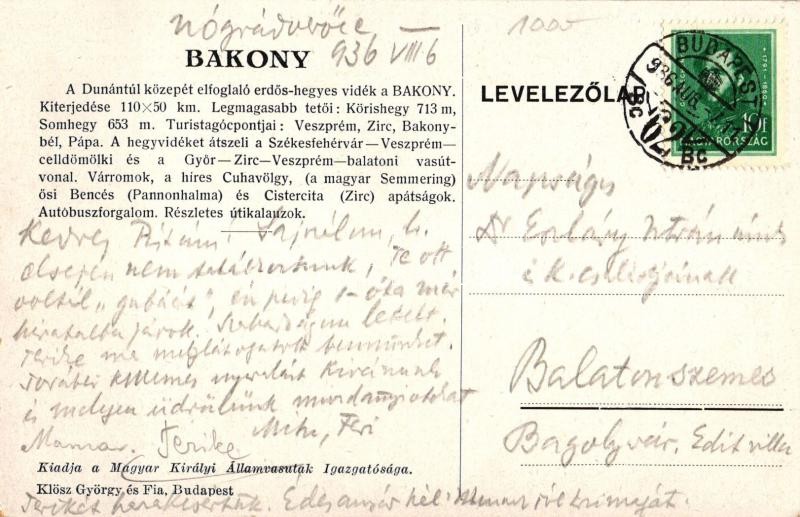 Nógrádverőce
936 VIII 6
1000
BAKONY
A Dunántúl közepét elfoglaló erdős-hegyes vidék a BAKONY.
Kiterjedése 110×50 km. Legmagasabb tetői: Kőrishegy 713 m,
Somhegy 653 m. Turistagócpontjai: Veszprém, Zirc, Bakony-
bél, Pápa. A hegyvidéket átszeli a Székesfehérvár—Veszprém—
celldömölki és a Győr—Zirc—Veszprém—balatoni vasút-
vonal. Várromok, a híres Cuhavölgy, (a magyar Semmering)
ősi Bencés (Pannonhalma) és Cistercita (Zirc) apátságok.
Autóbuszforgalom. Részletes útikalauzok.
Kedves Pistám! Sajnálom, h.
nem találkoztunk, Te ott
voltál én pedig 1-óta már
hivatalba járok. Szabadságom letelt.
Terike ma meglátogatott bennünket.
További kellemes nyaralást kívánunk
és melegen üdvözlünk mindannyiotokat
Mamar. Terike Feri
Kiadja a Magyar Királyi Államvasutak Igazgatósága.
Klösz György és Fia, Budapest
Terikét Édesanyár
LEVELEZŐLAP
BUDAPEST
936 AUG.
MAGYARORSZÁG
10f
Nagyságos
Dr István
és k. családjának
Balatonszemes
Bagolyvár, Edit villa